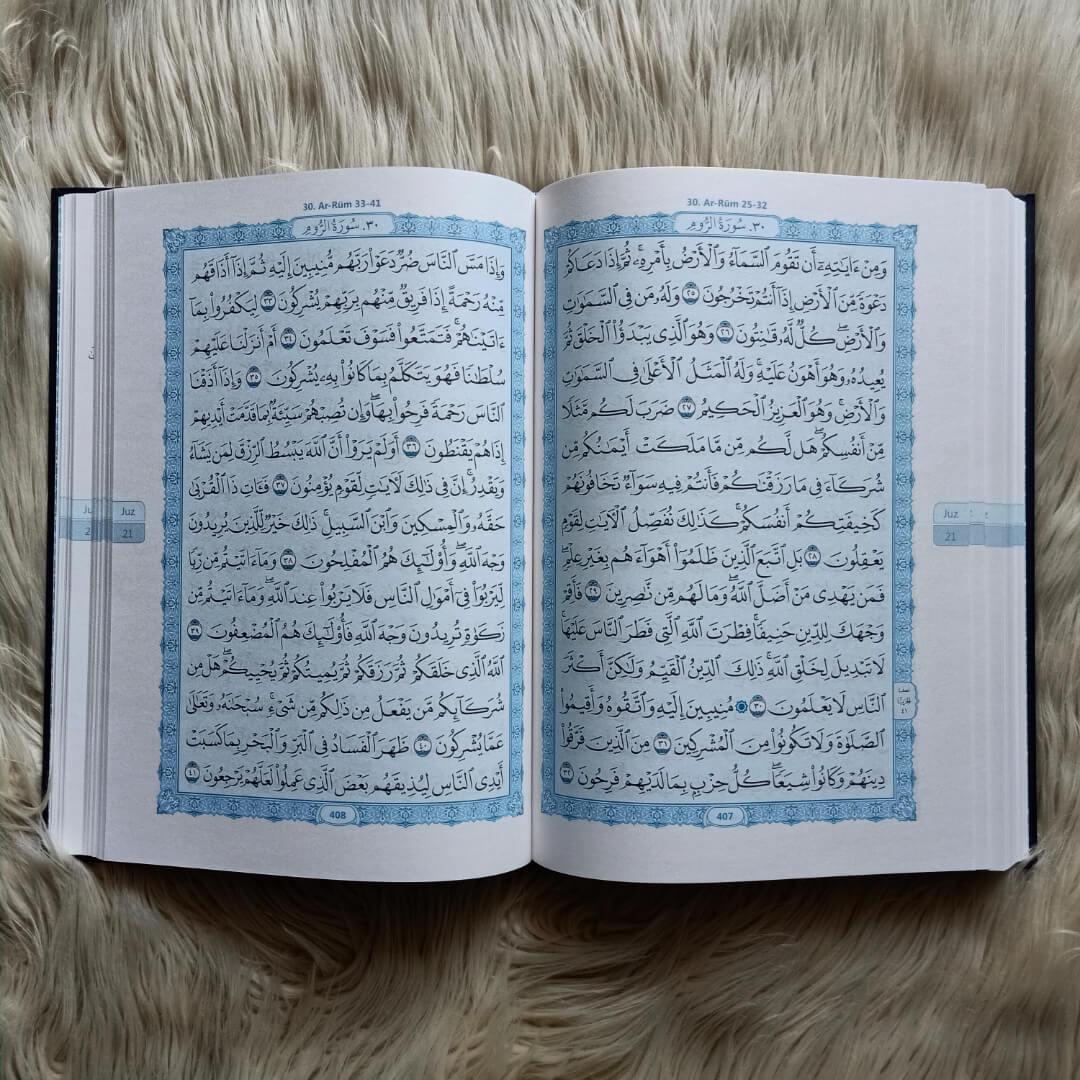 30. Ar-Rūm 25-32
٣٠. سُورَةُ الرُّومِ
وَمِنْ ءَايَٰتِهِۦٓ أَن تَقُومَ ٱلسَّمَآءُ وَٱلْأَرْضُ بِأَمْرِهِۦۚ ثُمَّ إِذَا دَعَاكُمْ
دَعْوَةً مِّنَ ٱلْأَرْضِ إِذَآ أَنتُمْ تَخْرُجُونَ ٢٥ وَلَهُۥ مَن فِى ٱلسَّمَٰوَٰتِ
وَٱلْأَرْضِۖ كُلٌّ لَّهُۥ قَٰنِتُونَ ٢٦ وَهُوَ ٱلَّذِى يَبْدَؤُا۟ ٱلْخَلْقَ ثُمَّ
يُعِيدُهُۥ وَهُوَ أَهْوَنُ عَلَيْهِۚ وَلَهُ ٱلْمَثَلُ ٱلْأَعْلَىٰ فِى ٱلسَّمَٰوَٰتِ
وَٱلْأَرْضِۚ وَهُوَ ٱلْعَزِيزُ ٱلْحَكِيمُ ٢٧ ضَرَبَ لَكُم مَّثَلًا
مِّنْ أَنفُسِكُمْۖ هَل لَّكُم مِّن مَّا مَلَكَتْ أَيْمَٰنُكُم مِّن
شُرَكَآءَ فِى مَا رَزَقْنَٰكُمْ فَأَنتُمْ فِيهِ سَوَآءٌ تَخَافُونَهُمْ
كَخِيفَتِكُمْ أَنفُسَكُمْۚ كَذَٰلِكَ نُفَصِّلُ ٱلْءَايَٰتِ لِقَوْمٍ
يَعْقِلُونَ ٢٨ بَلِ ٱتَّبَعَ ٱلَّذِينَ ظَلَمُوٓا۟ أَهْوَآءَهُم بِغَيْرِ عِلْمٍۖ
فَمَن يَهْدِى مَنْ أَضَلَّ ٱللَّهُۖ وَمَا لَهُم مِّن نَّٰصِرِينَ ٢٩ فَأَقِمْ
وَجْهَكَ لِلدِّينِ حَنِيفًاۚ فِطْرَتَ ٱللَّهِ ٱلَّتِى فَطَرَ ٱلنَّاسَ عَلَيْهَاۚ
لَا تَبْدِيلَ لِخَلْقِ ٱللَّهِۚ ذَٰلِكَ ٱلدِّينُ ٱلْقَيِّمُ وَلَٰكِنَّ أَكْثَرَ
ٱلنَّاسِ لَا يَعْلَمُونَ ٣٠ مُنِيبِينَ إِلَيْهِ وَٱتَّقُوهُ وَأَقِيمُوا۟
ٱلصَّلَوٰةَ وَلَا تَكُونُوا۟ مِنَ ٱلْمُشْرِكِينَ ٣١ مِنَ ٱلَّذِينَ فَرَّقُوا۟
دِينَهُمْ وَكَانُوا۟ شِيَعًاۖ كُلُّ حِزْبٍۭ بِمَا لَدَيْهِمْ فَرِحُونَ ٣٢
407
Juz
21
٤١
30. Ar-Rūm 33-41
٣٠. سُورَةُ الرُّومِ
وَإِذَا مَسَّ ٱلنَّاسَ ضُرٌّ دَعَوْا۟ رَبَّهُم مُّنِيبِينَ إِلَيْهِ ثُمَّ إِذَآ أَذَاقَهُم
مِّنْهُ رَحْمَةً إِذَا فَرِيقٌ مِّنْهُم بِرَبِّهِمْ يُشْرِكُونَ ٣٣ لِيَكْفُرُوا۟ بِمَآ
ءَاتَيْنَٰهُمْۚ فَتَمَتَّعُوا۟ فَسَوْفَ تَعْلَمُونَ ٣٤ أَمْ أَنزَلْنَا عَلَيْهِمْ
سُلْطَٰنًا فَهُوَ يَتَكَلَّمُ بِمَا كَانُوا۟ بِهِۦ يُشْرِكُونَ ٣٥ وَإِذَآ أَذَقْنَا
ٱلنَّاسَ رَحْمَةً فَرِحُوا۟ بِهَاۖ وَإِن تُصِبْهُمْ سَيِّئَةٌۢ بِمَا قَدَّمَتْ أَيْدِيهِمْ
إِذَا هُمْ يَقْنَطُونَ ٣٦ أَوَلَمْ يَرَوْا۟ أَنَّ ٱللَّهَ يَبْسُطُ ٱلرِّزْقَ لِمَن يَشَآءُ
وَيَقْدِرُۚ إِنَّ فِى ذَٰلِكَ لَءَايَٰتٍ لِّقَوْمٍ يُؤْمِنُونَ ٣٧ فَـَٔاتِ ذَا ٱلْقُرْبَىٰ
حَقَّهُۥ وَٱلْمِسْكِينَ وَٱبْنَ ٱلسَّبِيلِۚ ذَٰلِكَ خَيْرٌ لِّلَّذِينَ يُرِيدُونَ
وَجْهَ ٱللَّهِۖ وَأُو۟لَٰٓئِكَ هُمُ ٱلْمُفْلِحُونَ ٣٨ وَمَآ ءَاتَيْتُم مِّن رِّبًا
لِّيَرْبُوَا۟ فِىٓ أَمْوَٰلِ ٱلنَّاسِ فَلَا يَرْبُوا۟ عِندَ ٱللَّهِۖ وَمَآ ءَاتَيْتُم مِّن
زَكَوٰةٍ تُرِيدُونَ وَجْهَ ٱللَّهِ فَأُو۟لَٰٓئِكَ هُمُ ٱلْمُضْعِفُونَ ٣٩
ٱللَّهُ ٱلَّذِى خَلَقَكُمْ ثُمَّ رَزَقَكُمْ ثُمَّ يُمِيتُكُمْ ثُمَّ يُحْيِيكُمْۖ هَلْ مِن
شُرَكَآئِكُم مَّن يَفْعَلُ مِن ذَٰلِكُم مِّن شَىْءٍۚ سُبْحَٰنَهُۥ وَتَعَٰلَىٰ
عَمَّا يُشْرِكُونَ ٤٠ ظَهَرَ ٱلْفَسَادُ فِى ٱلْبَرِّ وَٱلْبَحْرِ بِمَا كَسَبَتْ
أَيْدِى ٱلنَّاسِ لِيُذِيقَهُم بَعْضَ ٱلَّذِى عَمِلُوا۟ لَعَلَّهُمْ يَرْجِعُونَ ٤١
408
Juz
21